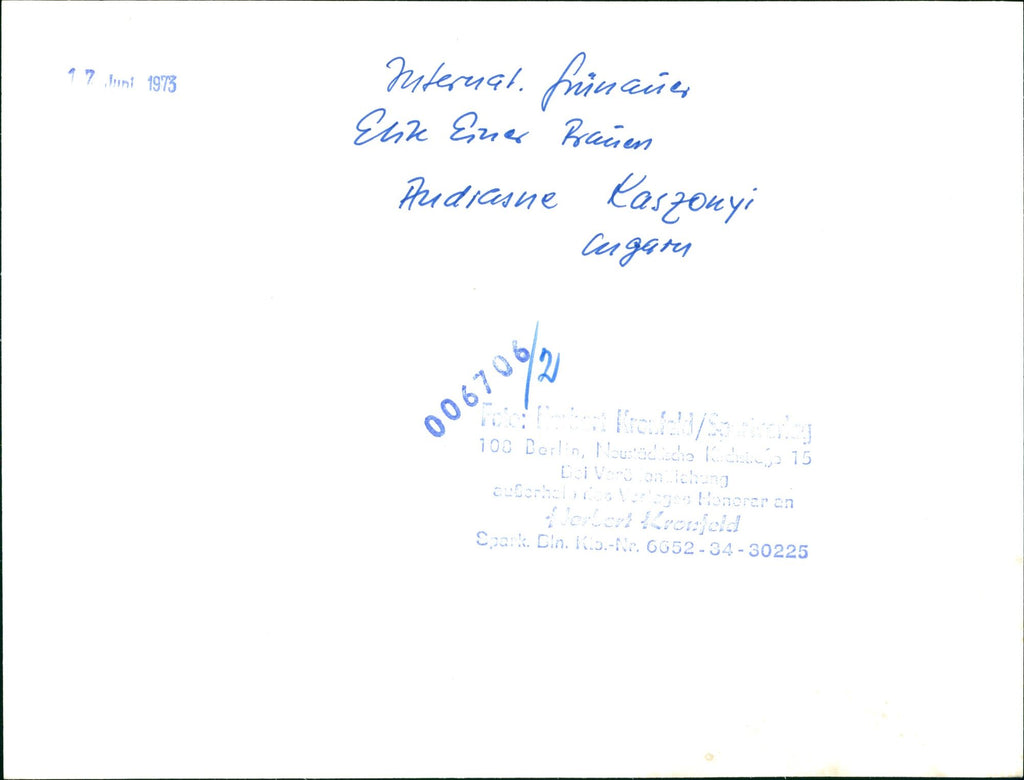 17. Juni 1973
Internat. Grünauer
Elite Einer Frauen
Andrasne Kaszonyi
Ungarn
006706/2
Foto: Herbert Kronfeld/Sportverlag
108 Berlin, Neustädtische Kirchstraße 15
Bei Veröffentlichung
außerhalb des Verlages Honorar an
Herbert Kronfeld
Spark. Bln. Kto.-Nr. 6652-34-30225